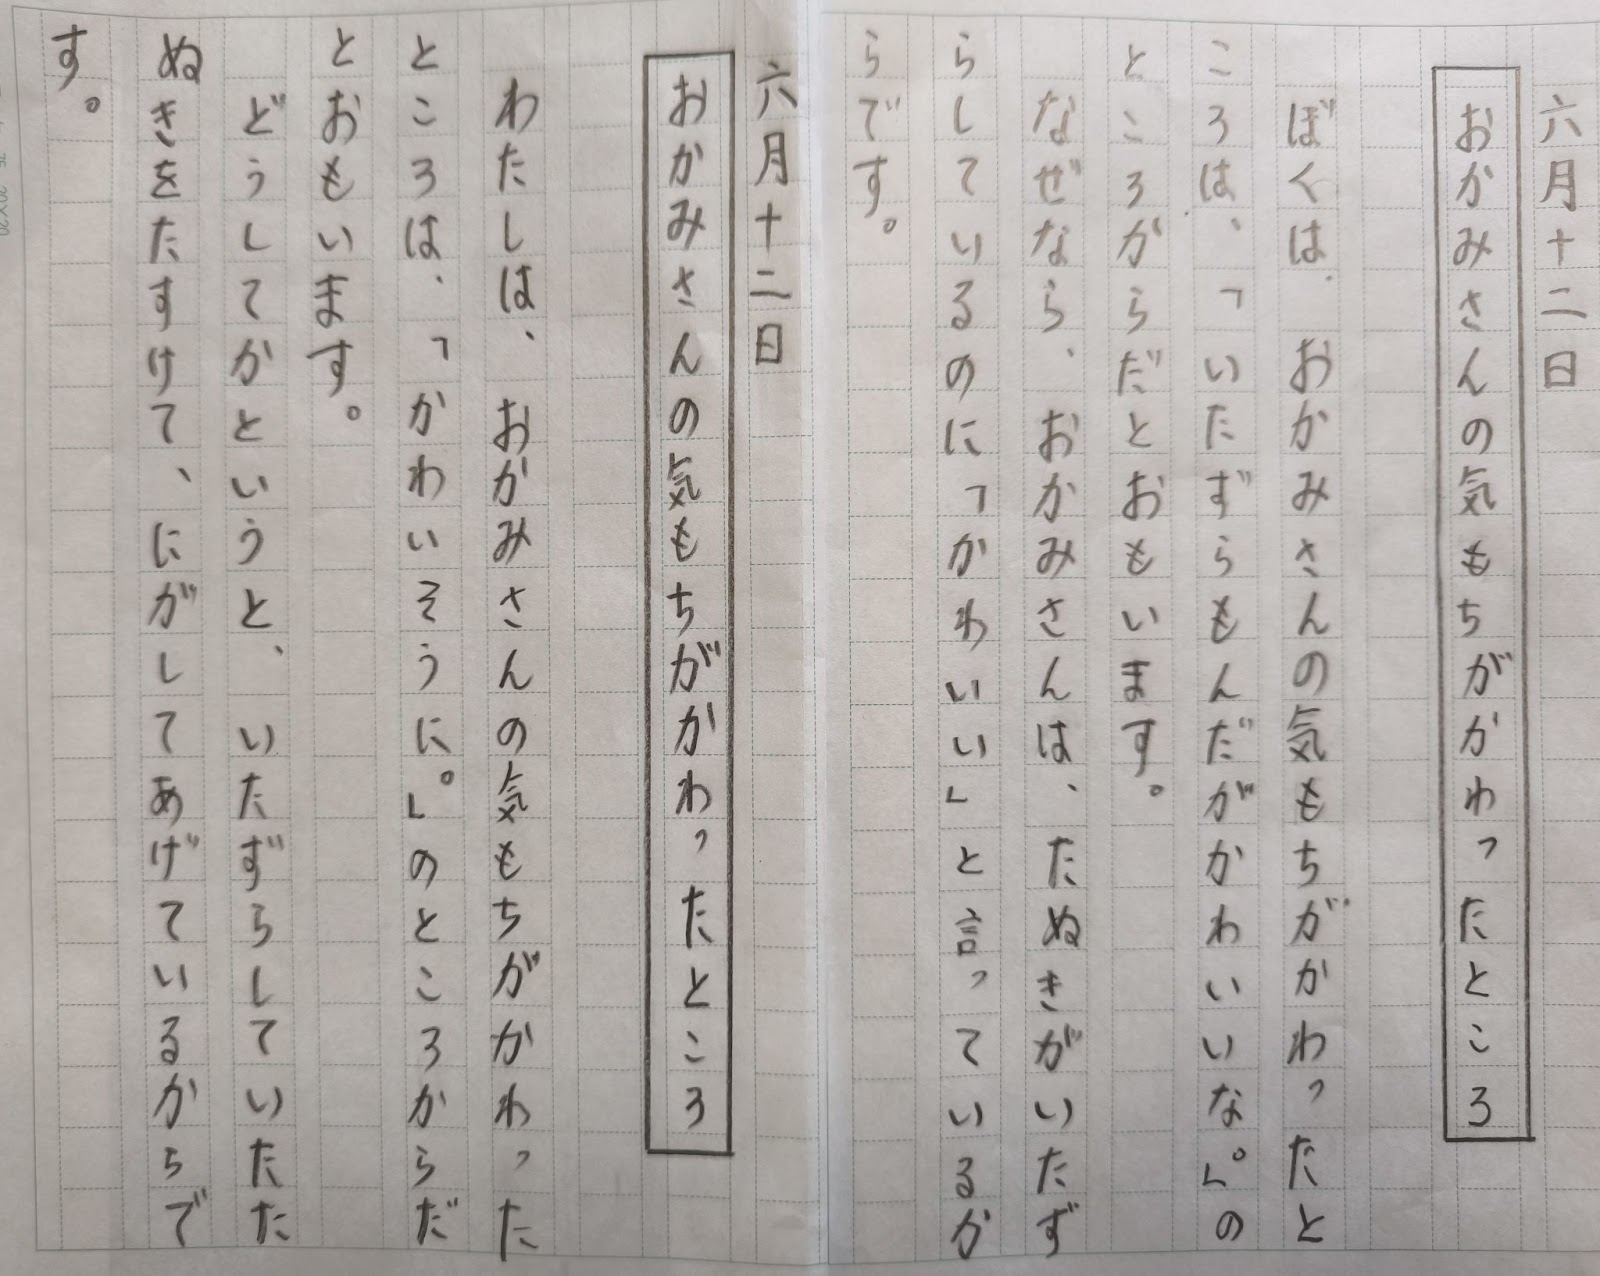 六月十二日
おかみさんの気もちがかわったところ
ぼくは、おかみさんの気もちがかわったと
ころは、「いたずらもんだがかわいいな。」の
ところがらだとおもいます。
なぜなら、おかみさんは、たぬきがいたず
らしているのに「かわいい」と言っているか
らです。
六月十二日
おかみさんの気もちがかわったところ
わたしは、おかみさんの気もちがかわった
ところは、「かわいそうに。」のところからだ
とおもいます。
どうしてかというと、いたずらしていたた
ぬきをたすけて、にがしてあげているからで
す。